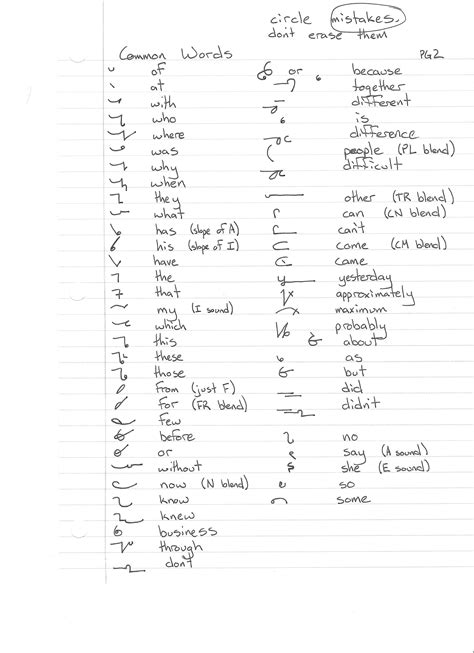 circle mistakes.
dont erase them
Common Words
PG2
of
or
because
at
together
with
different
who
is
where
difference
was
people (PL blend)
why
difficult
when
they
other (TR blend)
what
can (CN blend)
has (slope of A)
can't
his (slope of I)
come (CM blend)
have
came
the
yesterday
that
approximately
my (I sound)
maximum
which
probably
this
about
these
as
those
but
from (just F)
did
for (FR blend)
didn't
few
before
no
or
say (A sound)
without
she (E sound)
now (N blend)
so
know
some
knew
business
through
don't